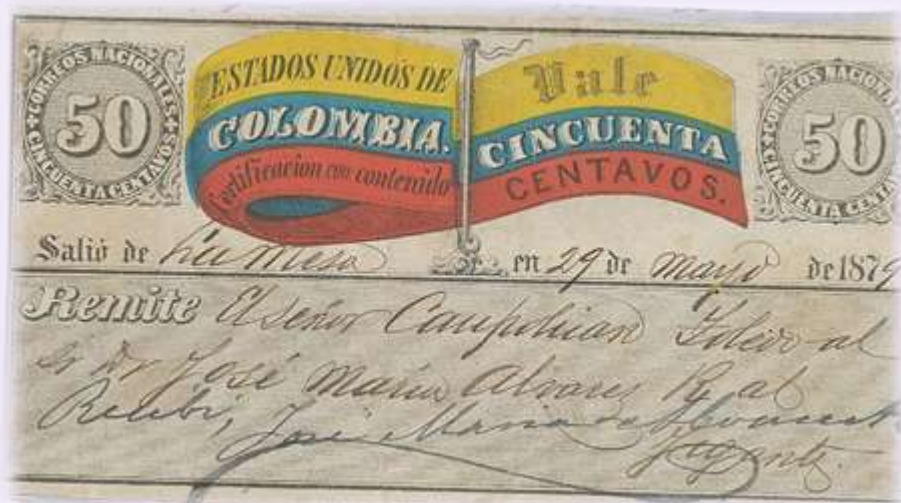 CORREOS NACIONALES
50
CINCUENTA CENTAVOS
ESTADOS UNIDOS DE
COLOMBIA.
Certificacion con contenido
Vale
CINCUENTA
CENTAVOS.
CORREOS NACION
50
CINCUENTA CENTA
Salió de La Mesa en 29 de Mayo de 1879
Remite El señor Caupolican Toledo al
Sr Dr José Maria Alvarez
Recibí, José Maria